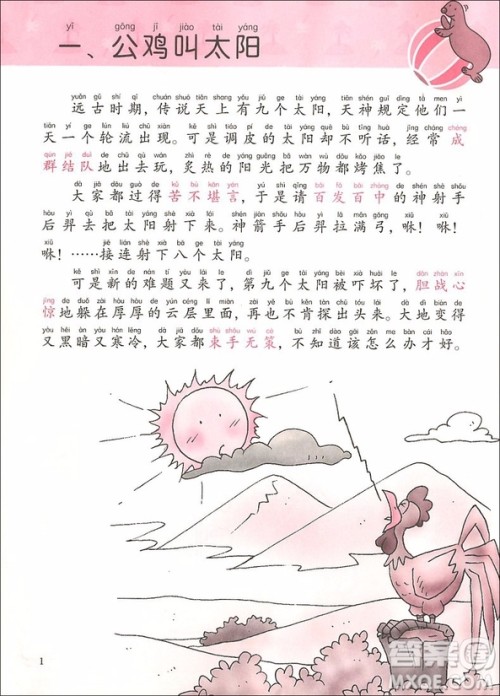 yī gōng jī jiào tài yáng
一、公鸡叫太阳
yuǎn gǔ shí qī chuán shuō tiān shang yǒu jiǔ gè tài yáng tiān shén guī dìng tā men yì
远古时期，传说天上有九个太阳，天神规定他们一
tiān yí gè lún liú chū xiàn kě shì tiáo pí de tài yáng què bù tīng huà jīng cháng chéng
天一个轮流出现。可是调皮的太阳却不听话，经常成
qún jié duì de chū qù wán zhì rè de yáng guāng bǎ wàn wù dōu kǎo jiāo le
群结队地出去玩，炙热的阳光把万物都烤焦了。
dà jiā dōu guò de kǔ bù kān yán yú shì qǐng bǎi fā bǎi zhòng de shén shè shǒu
大家都过得苦不堪言，于是请百发百中的神射手
hòu yì qù bǎ tài yáng shè xià lái shén jiàn shǒu hòu yì lā mǎn gōng xiū
后羿去把太阳射下来。神箭手后羿拉满弓，咻！
xiū jiē lián shè xià bā gè tài yáng
咻！……接连射下八个太阳。
kě shì xīn de nán tí yòu lái le dì jiǔ gè tài yáng bèi xià huài le dǎn zhàn xīn
可是新的难题又来了，第九个太阳被吓坏了，胆战心
jīng de duǒ zài hòu hòu de yún céng lǐ miàn zài yě bù kěn tàn chū tóu lái dà dì biàn de
惊地躲在厚厚的云层里面，再也不肯探出头来。大地变得
yòu hēi àn yòu hán lěng dà jiā dōu shù shǒu wú cè bù zhī dào gāi zěn me bàn cái hǎo
又黑暗又寒冷，大家都束手无策，不知道该怎么办才好。
1
答案圈
MXQE.COM